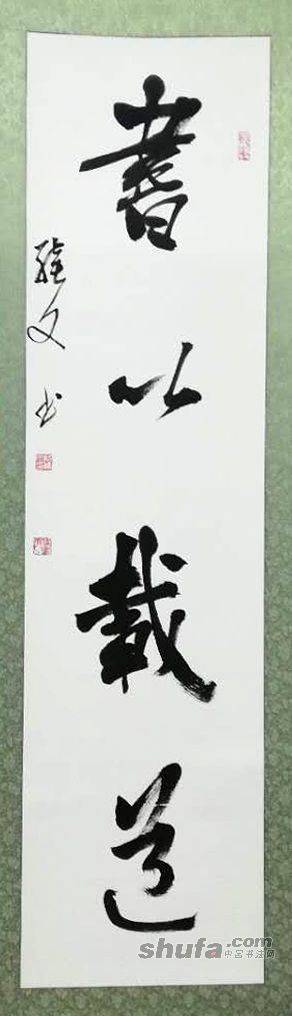 書以載道
文书
shufa.com
中国书法网